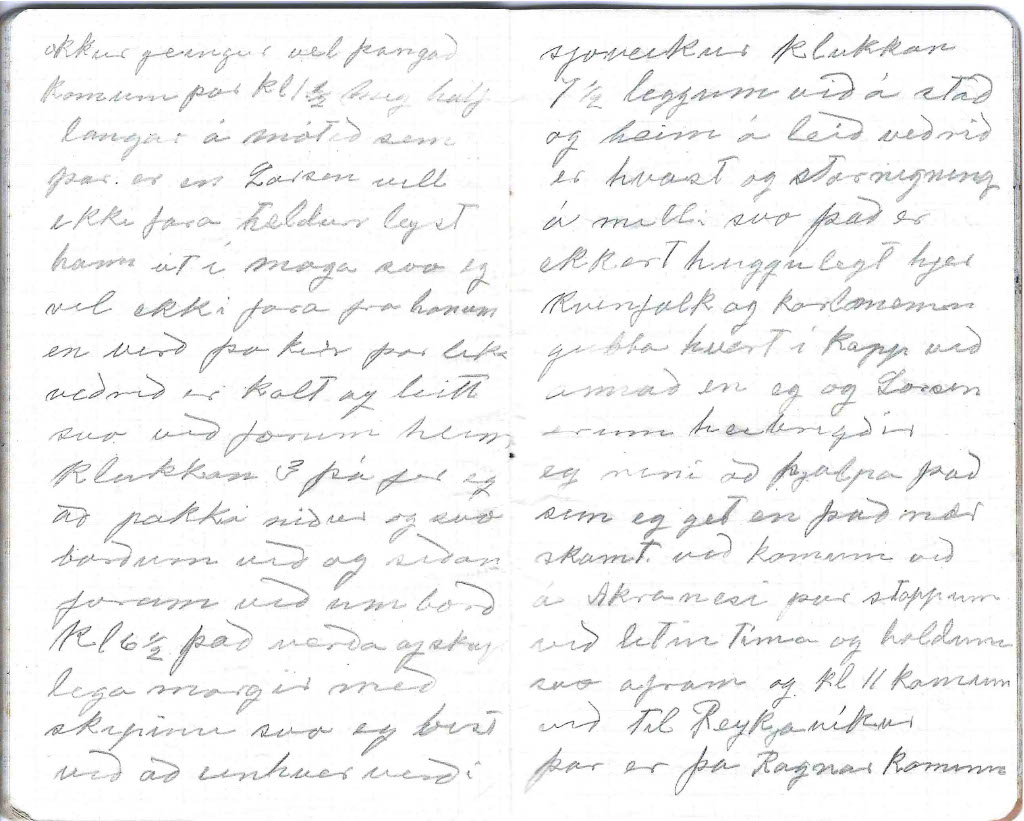 okkur geingur vel þangad
komum þar kl 1 1/2 mig half
langar á mótid sem
þar er en Larsen vill
ekki fara heldur legst
hann út í moga svo eg
vil ekki fara fra honum
en verd þo kir þar lika
vedrid er kalt og leitt
svo vid forum heim
klukkan 3 þá fer eg
ad pakka nidur og svo
bordum vid og sidan
forum vid um bord
kl 6 1/2 þad verda afskap
lega margir med
skipinu svo eg bist
vid ad einhver verdi
sjoveikur klukkan
7 1/2 leggum vid á stad
og heim á leid vedrid
er hvast og storrigning
á milli svo þad er
ekkert huggulegt hjer
kvenfolk og karlmenn
gubba hvert i kapp vid
annad en eg og Larsen
erum heilbrigdir
eg reini ad hjalpa þad
sem eg get en þad nær
skamt. vid komum vid
á Akranesi þar stoppum
vid litin tima og holdum
svo afram og kl 11 komum
vid til Reykjavikur
þar er þa Ragnar komum